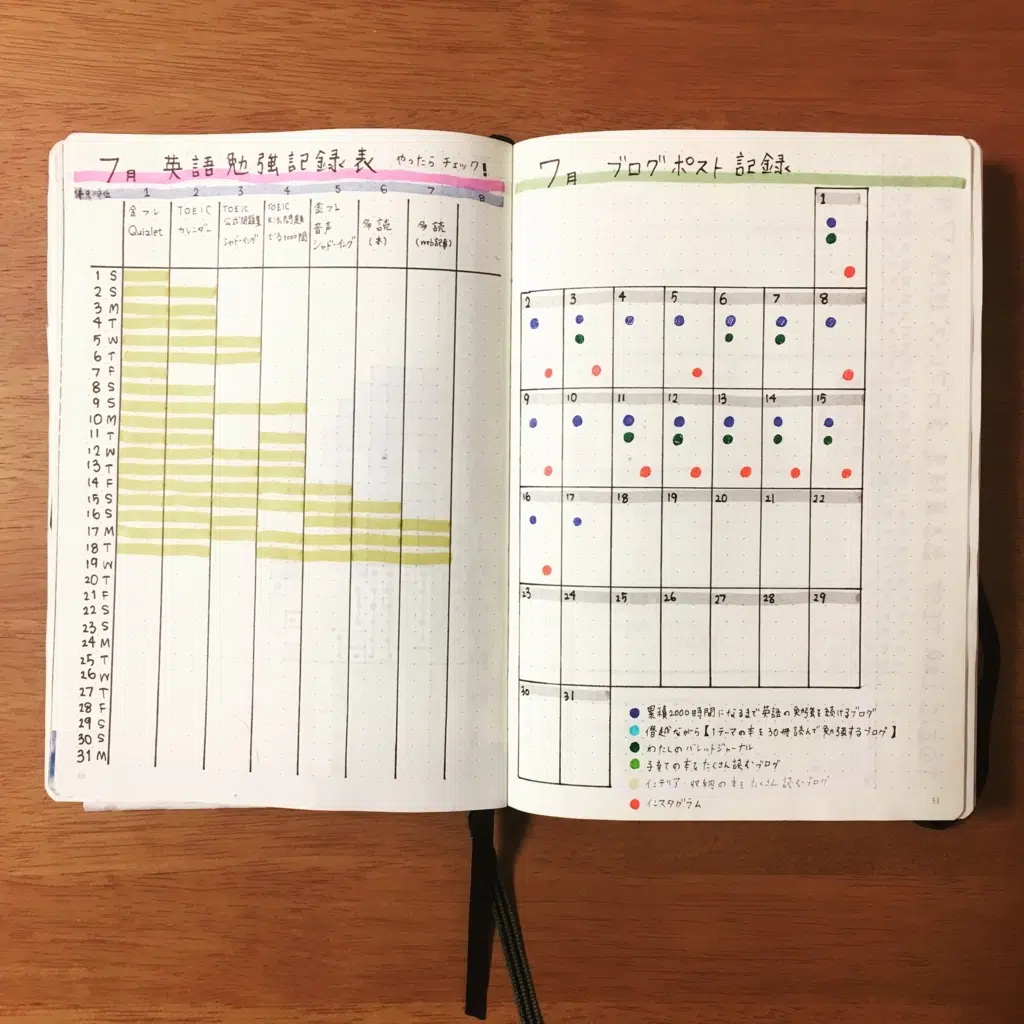 7月 英語勉強記録表 やったらチェック!
優先順位 1 2 3 4 5 6 7 8
金フレ Quizlet
TOEIC カレンダー
TOEIC 公式問題集 シャドーイング
TOEIC
金フレ 音声 シャドーイング
多読 (本)
多読 (web記事)
1 S
2 S
3 M
4 T
5 W
6 T
7 F
8 S
9 S
10 M
11 T
12 W
13 T
14 F
15 S
16 S
17 M
18 T
19 W
20 T
21 F
22 S
23 S
24 M
25 T
26 W
27 T
28 F
29 S
30 S
31 M
7月 ブログポスト記録
1
2 3 4 5 6 7 8
9 10 11 12 13 14 15
16 17 18 19 20 21 22
23 24 25 26 27 28 29
30 31
累積2000時間になるまで英語の勉強を続けるブログ
僭越ながら【1テーマの本を30冊読んで勉強するブログ】
わたしのバレットジャーナル
子育ての本をたくさん読むブログ
インテリア・収納の本をたくさん読むブログ
インスタグラム
51